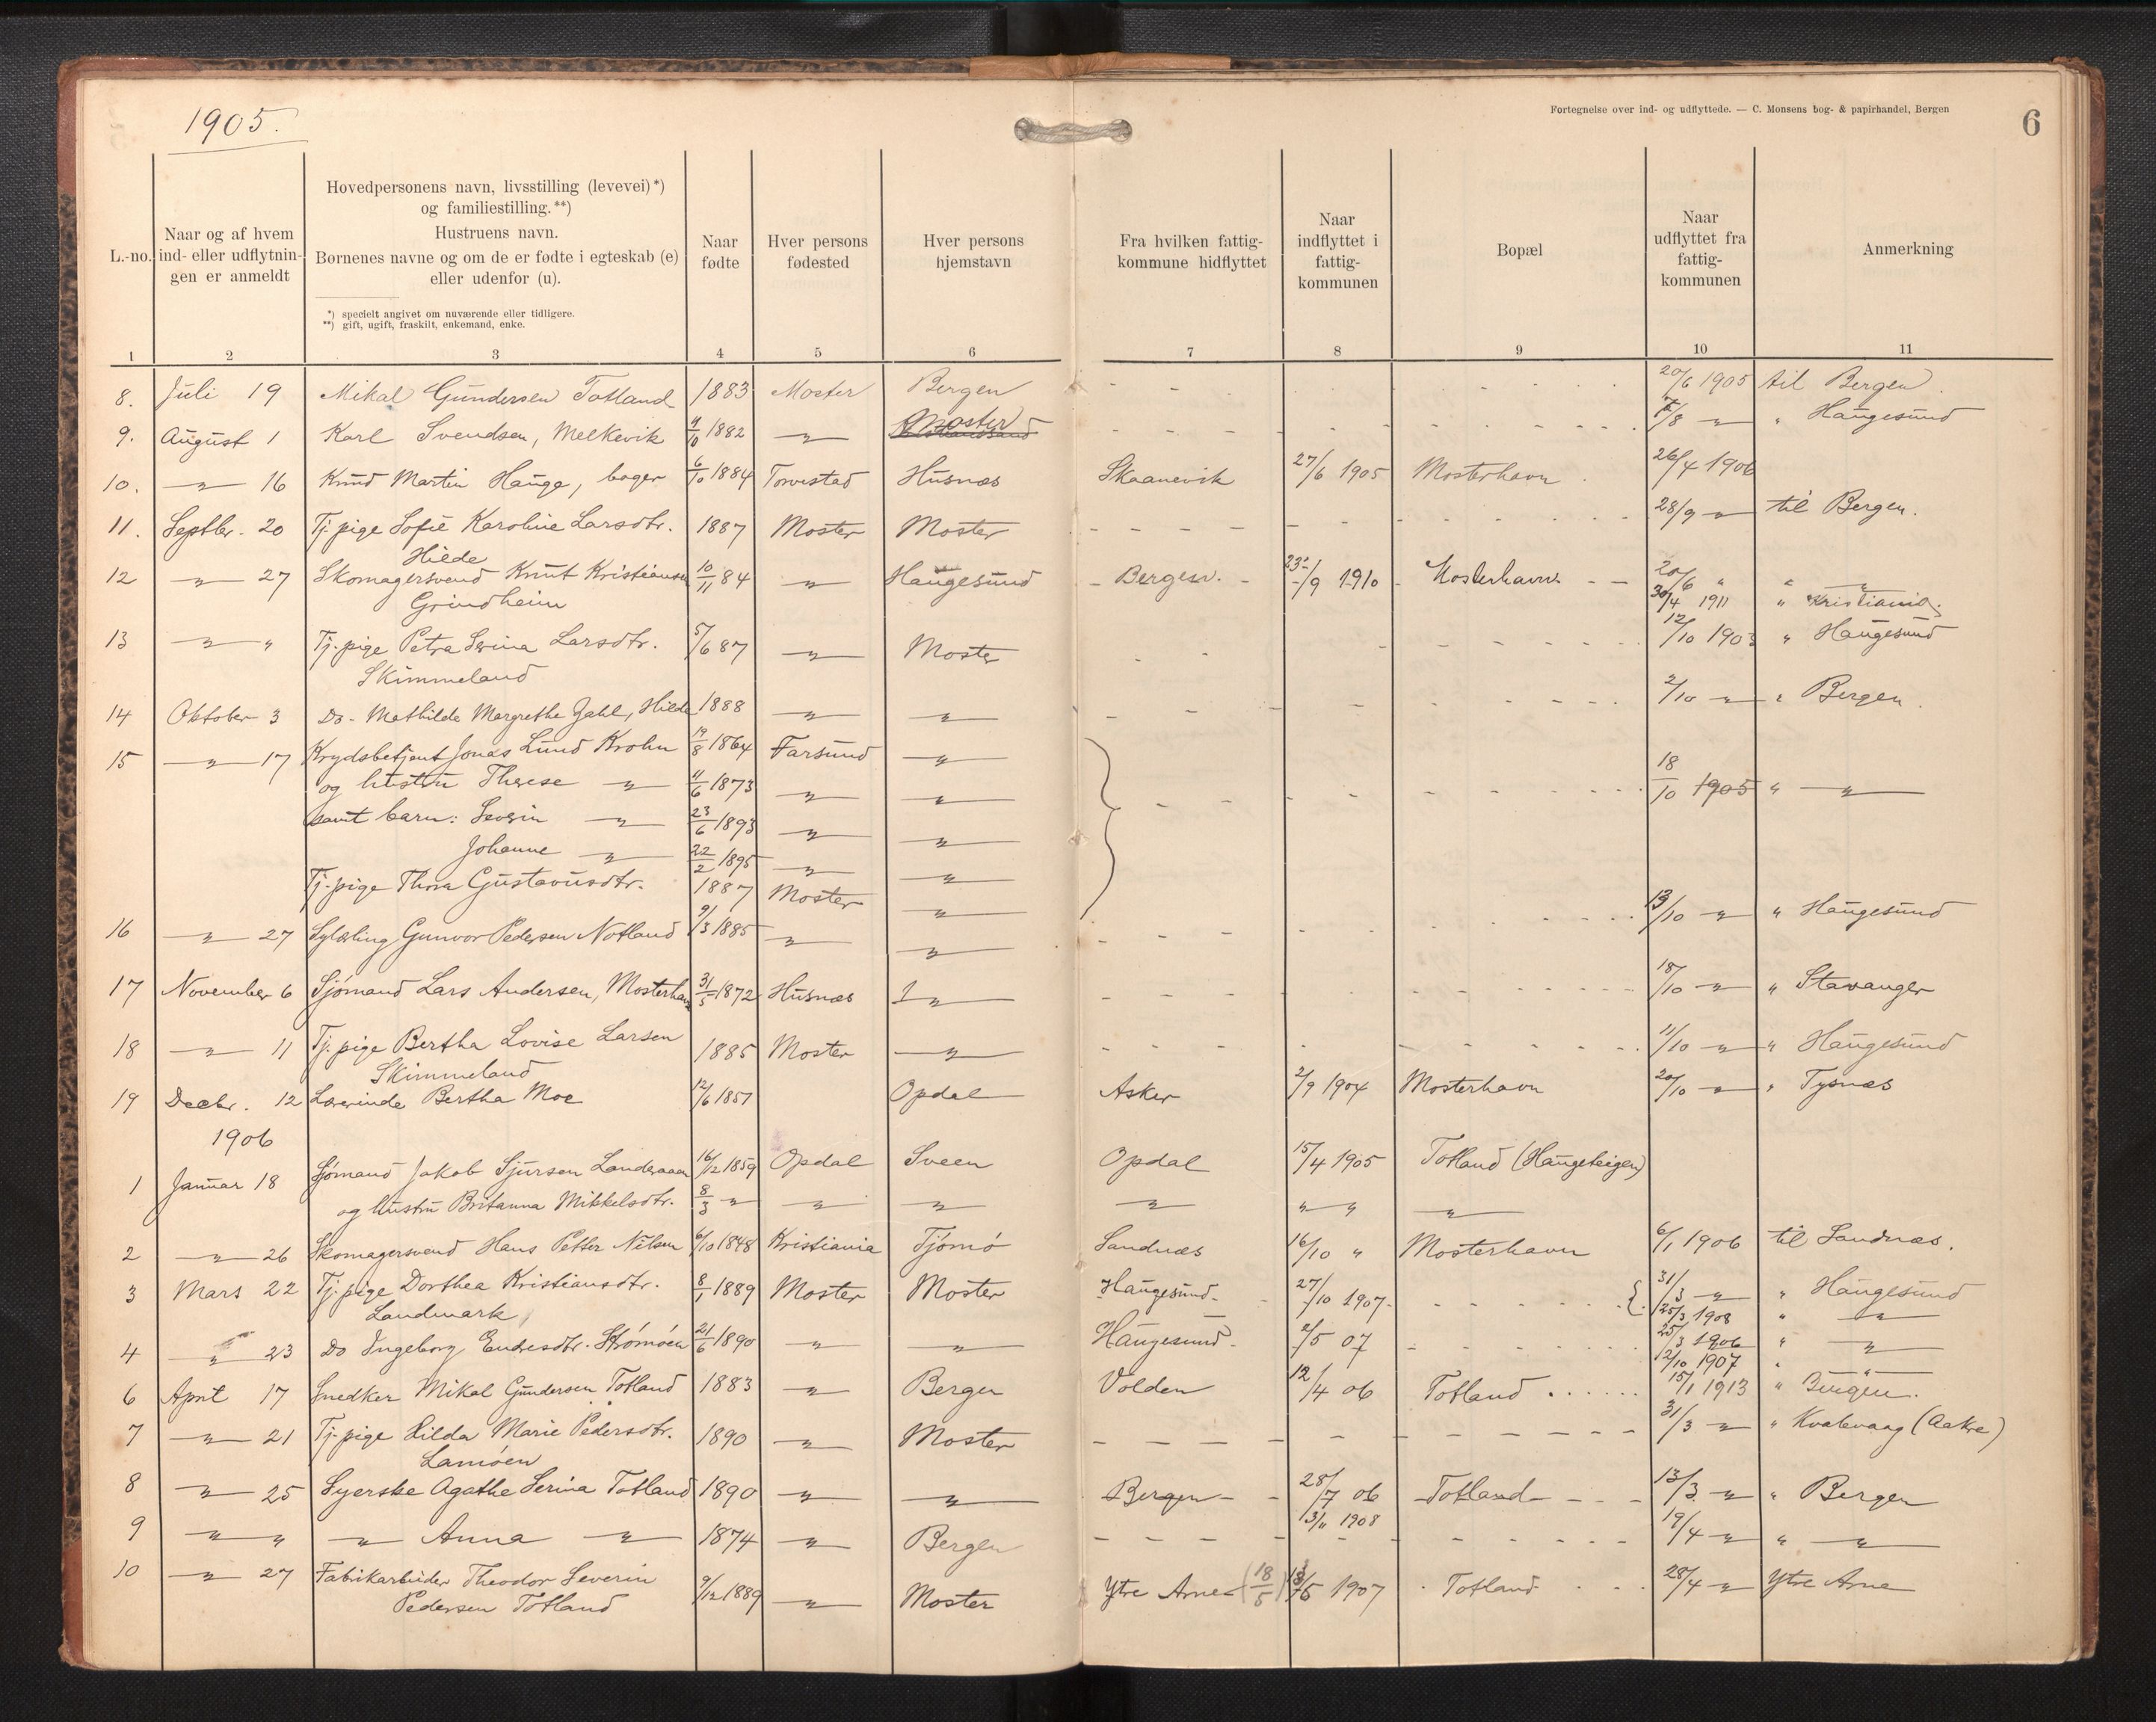 1905.
Fortegnelse over ind- og udflyttede. — C. Monsens bog- & papirhandel, Bergen
6
L.-no.
Naar og af hvem ind- eller udflytnin-gen er anmeldt
Hovedpersonens navn, livsstilling (levevei)*)
og familiestilling.**)
Hustruens navn.
Børnenes navne og om de er fødte i egteskab (e)
eller udenfor (u).
*) specielt angivet om nuværende eller tidligere.
**) gift, ugift, fraskilt, enkemand, enke.
Naar fødte
Hver persons fødested
Hver persons hjemstavn
Fra hvilken fattig-kommune hidflyttet
Naar indflyttet i fattig-kommunen
Bopæl
Naar udflyttet fra fattig-kommunen
Anmerkning
1 2 3 4 5 6 7 8 9 10 11
8. Juli 19 Mikal Gundersen Totland 1883 Moster Bergen - - 20/6 1905 til Bergen.
9. August 1 Karl Svendsen, Melkevik 1882 — " — Moster - - /8 — " — " Haugesund
10. — " — 16 Knud Martin Hauge, bager 6/10 1884 Torvestad Husnæs Skaanevik 27/6 1905 Mosterhavn 26/4 1906
11. Septbr. 20 Tj. pige Sofie Karoline Larsdtr. 1887 Moster Moster - - 28/9 — " — til Bergen.
Hilde
12 — " — 27 Skomagersvend Knut Kristiansen 10/11 84 — " — Haugesund Bergen. /9 1910 Mosterhavn 20/6 " " — " —
Grindheim 30/4 1911 " Kristiania.
13 — " — " Tj. pige Petra Serina Larsdtr. 5/6 87 — " — Moste - - 12/10 1903 " Haugesund
Skimmeland
14 Oktober 3 Do - Mathilde Margrethe Jahl, Hilde 1888 — " — — " — - - 2/10 — " — " Bergen.
15 — " — 17 Krydsbetjent Jonas Lund Krohn 19/8 1864 Farsund — " —
og hustru Therese — " — 11/6 1873 — " — — " — - - 18/10 1905 " — " —
samt barn: Severin — " — 23/6 1893 — " — — " —
Johanne — " — 22/2 1895 — " — — " —
Tj. pige Thora Gustavusdtr. 1887 Moster — " —
16 — " — 27 Sylærling Gunvor Pedersen Notland 9/3 1885 — " — — " — - - 13/10 — " — " Haugesund
17 November 6 Sjømand Lars Andersen, Mosterhavn 31/5 1872 Husnæs — " — - - 18/10 — " — " Stavanger
18 — " — 11 Tj. pige Bertha Lovise Larsen 1885 Moster — " — - - 11/10 — " — " Haugesund
Skimmeland
19 Decbr. 12 Lærerinde Bertha Moe 12/6 1857 Opdal Asker 2/9 1904 Mosterhavn 20/10 — " — " Tysnæs
1906
1 Januar 18 Sjømand Jakob Sjursen Landeraaen 16/12 1859 Opdal Sveen Opdal 15/4 1905 Totland (Haugeteigen)
og hustru Britanna Mikkelsdtr. 8/3 — " — — " — — " — — " — " " — " —
2 — " — 26 Skomagersvend Hans Petter Nilsen 6/10 1848 Kristiania Tjømø Sandnæs 16/10 " Mosterhavn 6/1 1906 til Sandnæs.
3 Mars 22 Tj. pige Dorthea Kristiansdtr. 8/1 1889 Moster Moster Haugesund 27/10 1907 - - 31/3 — " — " Haugesund
Landmark 25/3 1908 " — " —
4 — " — 23 Do Ingeborg Endresdtr. Strømøen 21/6 1890 — " — — " — Haugesund 2/5 07 - - 25/3 1906 " — " —
12/10 1907 " — " —
6 April 17 Snedker Mikal Gundersen Totland 1883 — " — Bergen Volden 12/4 06 Totland 15/1 1913 " Bergen.
7 — " — 21 Tj. pige Hilda Marie Pedersdtr. 1890 — " — Moster - - 31/3 — " — " Kvalevaag (Aakre)
Lamøen
8 — " — 25 Syerske Agathe Serina Totland 1890 — " — — " — Bergen 28/7 06 Totland 13/3 — " — " Bergen
3/11 1908
9 — " — " — " — Anna — " — 1874 — " — Bergen - - 19/4 — " — " — " —
10 — " — 27 Fabrikarbeider Theodor Severin 9/12 1889 — " — Moster Ytre Arne (18/5) /5 1907 Totland 28/4 — " — Ytre Arne
Pedersen Totland